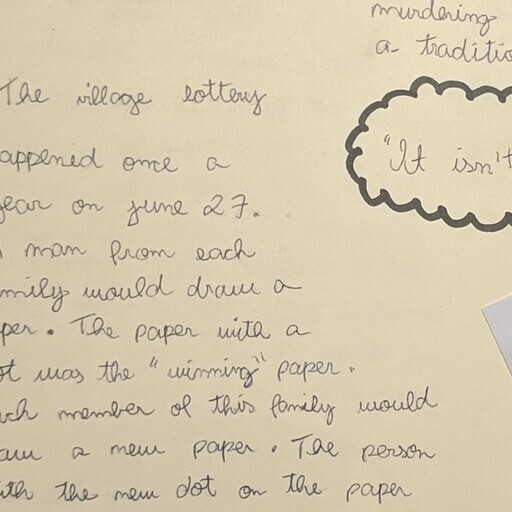 murdering
a traditio
The village lottery
"It isn't
appened once a
year on june 27.
man from each
mily would draw a
per. The paper with a
ot was the "winning" paper.
ch member of this family would
aw a new paper. The person
ith the new dot on the paper